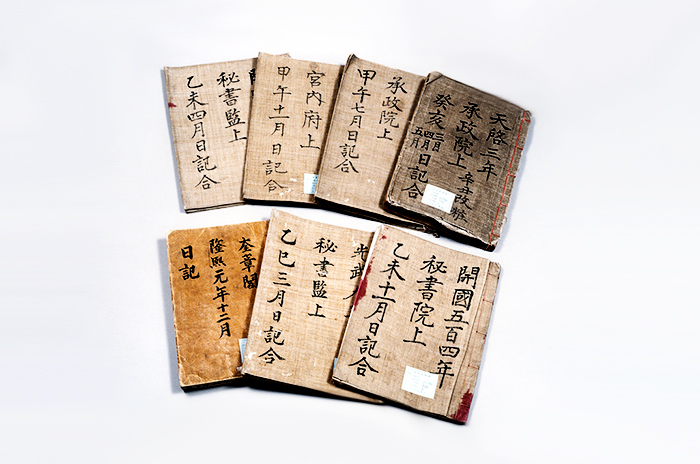 天啓三年
承政院上 辛丑改粧
癸亥三月四月五月日記合
承政院上
甲午七月日記合
宮內府上
甲午十一月日記合
秘書監上
乙未四月日記合
開國五百四年
秘書院上
乙未十一月日記合
光武
秘書監上
乙巳三月日記合
奎章閣
隆熙元年十二月
日記